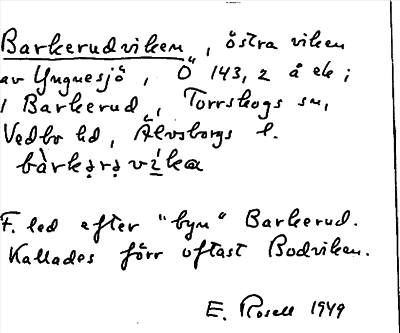 Barkerudviken, östra viken
av Yngnesjö, Ö 143, 2 å ek i
1 Barkerud, Torrskogs sn,
Vedbo hd, Älvsborgs l.
bàrkərə víka
F. led efter "byn" Barkerud.
Kallades förr oftast Bodviken.
E. Rosell 1949